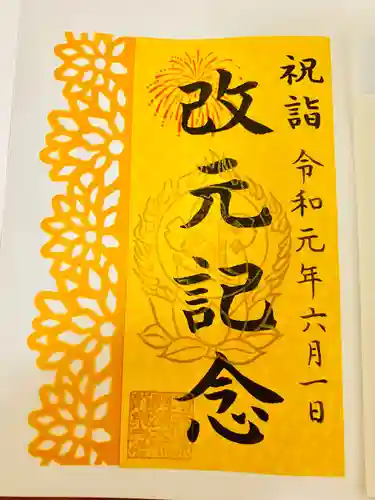 祝詣
令和元年六月一日
改元記念